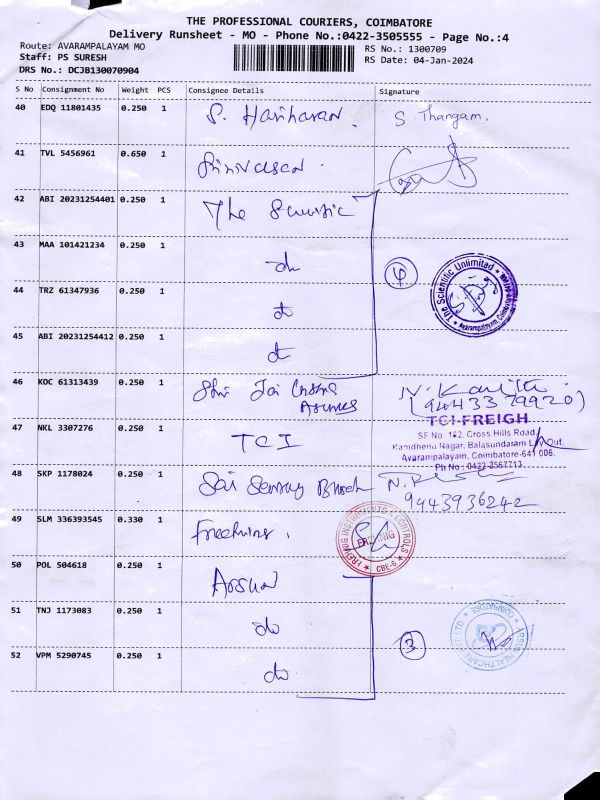 THE PROFESSIONAL COURIERS, COIMBATORE
Delivery Runsheet - MO - Phone No.:0422-3505555 - Page No.:4
Route: AVARAMPALAYAM MO
RS No.: 1300709
Staff: PS SURESH
RS Date: 04-Jan-2024
DRS No.: DCJB130070904
S No Consignment No Weight PCS Consignee Details Signature
40 EDQ 11801435 0.250 1 S. Hariharan. S. Thangam.
41 TVL 5456961 0.650 1 Srinivasan.
42 ABI 20231254401 0.250 1 The
43 MAA 101421234 0.250 1 do
44 TRZ 61347936 0.250 1 do
4
The Scientific Unlimited
Avarampalayam, Coimbatore
45 ABI 20231254412 0.250 1 do
46 KOC 61313439 0.250 1 Shri Jai
(9443379920)
47 NKL 3307276 0.250 1 TCI
TCI-FREIGH
SF No. 162, Cross Hills Road
Kamdhenu Nagar, Balasundaram Layout,
Avarampalayam, Coimbatore-641 006.
Ph No : 0422-2567713
48 SKP 1178024 0.250 1 Sai
9443936242
49 SLM 336393545 0.330 1
INSTRUMENTS & CONTROLS
CBE-6
50 POL 504618 0.250 1
51 TNJ 1173083 0.250 1 do
3
COIMBATORE
HEALTHCARE PVT LTD
52 VPM 5290745 0.250 1 do